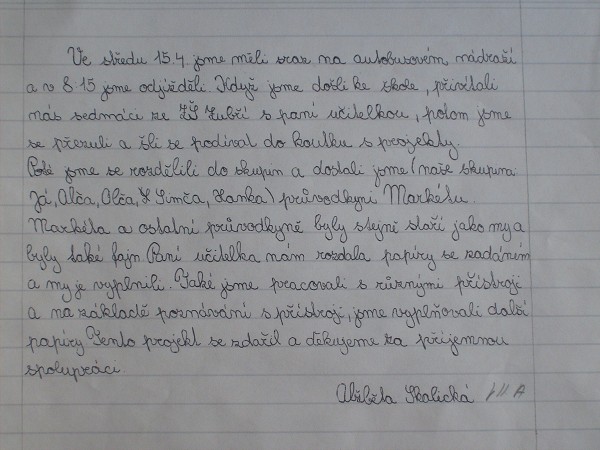 Ve středu 15.4. jsme měli sraz na autobusovém nádraží
a v 8.15 jsme odjížděli. Když jsme došli ke škole, přivítali
nás sedmáci ze ZŠ Zubří s paní učitelkou, potom jsme
se přezuli a šli se podívat do koutku s projekty.
Poté jsme se rozdělili do skupin a dostali jsme (naše skupina:
Já, Alča, Olča, Simča, Hanka) průvodkyni Markétu.
Markéta a ostatní průvodkyně byly stejně staří jako my a
byly také fajn. Paní učitelka nám rozdala papíry se zadáním
a my je vyplnili. Také jsme pracovali s různými přístroji
a na základě poznávání s přístroji, jsme vyplňovali další
papíry. Tento projekt se zdařil a děkujeme za příjemnou
spolupráci.
Alžběta Skalická